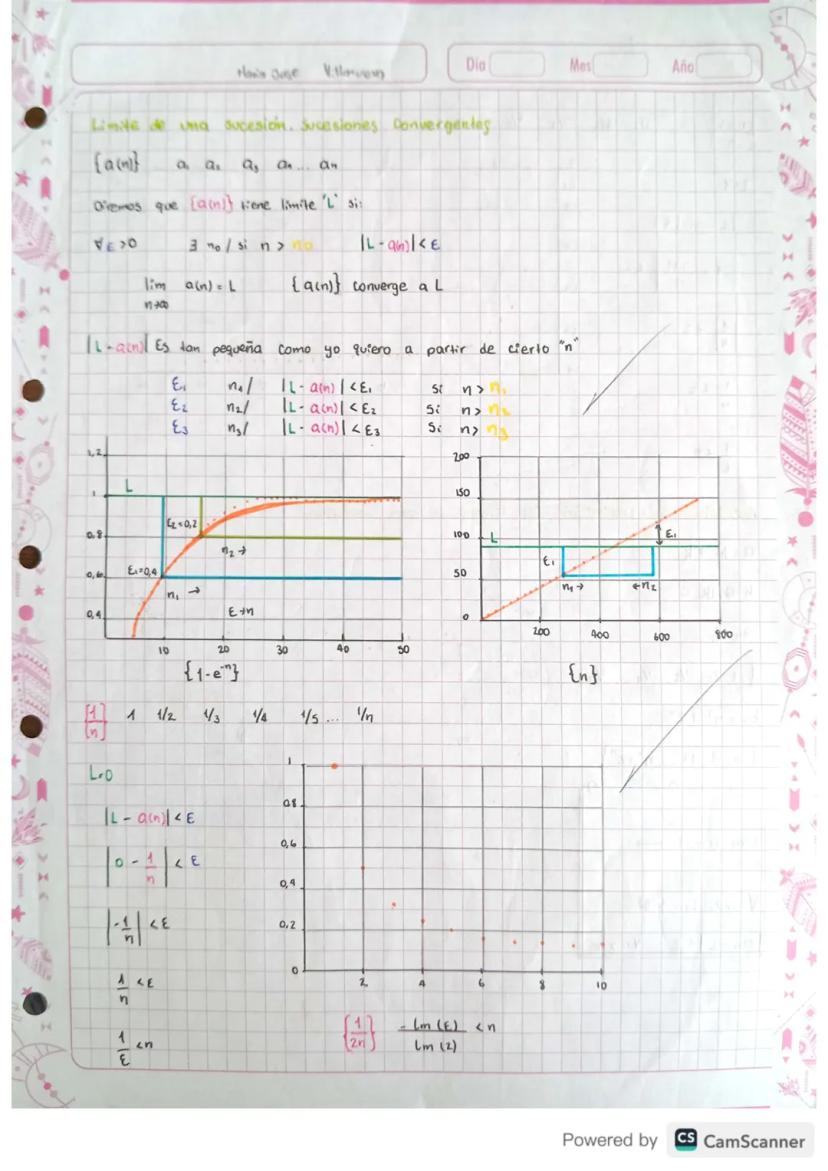 Día Mes Año
Limite de una sucesión. Sucesiones Convergentes
{a(n)} a₁ a₂ a₃ a₄ ... an
Diremos que {a(n)} tiene límite "L" si:
∀ε>0 ∃ n₀ / si n > n₀ |L - a(n)| < ε
lim a(n) = L {a(n)} converge a L
n→∞
|L - a(n)| Es tan pequeña como yo quiero a partir de cierto "n"
ε₁ n₁/ |L - a(n)| < ε₁ Si n > n₁
ε₂ n₂/ |L - a(n)| < ε₂ Si n > n₂
ε₃ n₃/ |L - a(n)| < ε₃ Si n > n₃
1,2
1
0,8
0,6
0,4
L
ε₂=0,2
n₂ →
ε₁=0,4
n₁ →
ε→n
10 20 30 40 50
{1-e⁻ⁿ}
200
150
100
50
0
L
ε₁
ε₁
n₁→ ←n₂
200 400 600 800
{n}
{1/n} 1 1/2 1/3 1/4 1/5 ... 1/n
L=0
|L - a(n)| < ε
|0 - 1/n| < ε
|-1/n| < ε
1/n < ε
1/ε < n
1
0.8
0,6
0,4
0,2
0
2 4 6 8 10
{1/2n} -Lm (ε)/Lm (2) < n
Powered by CS CamScanner